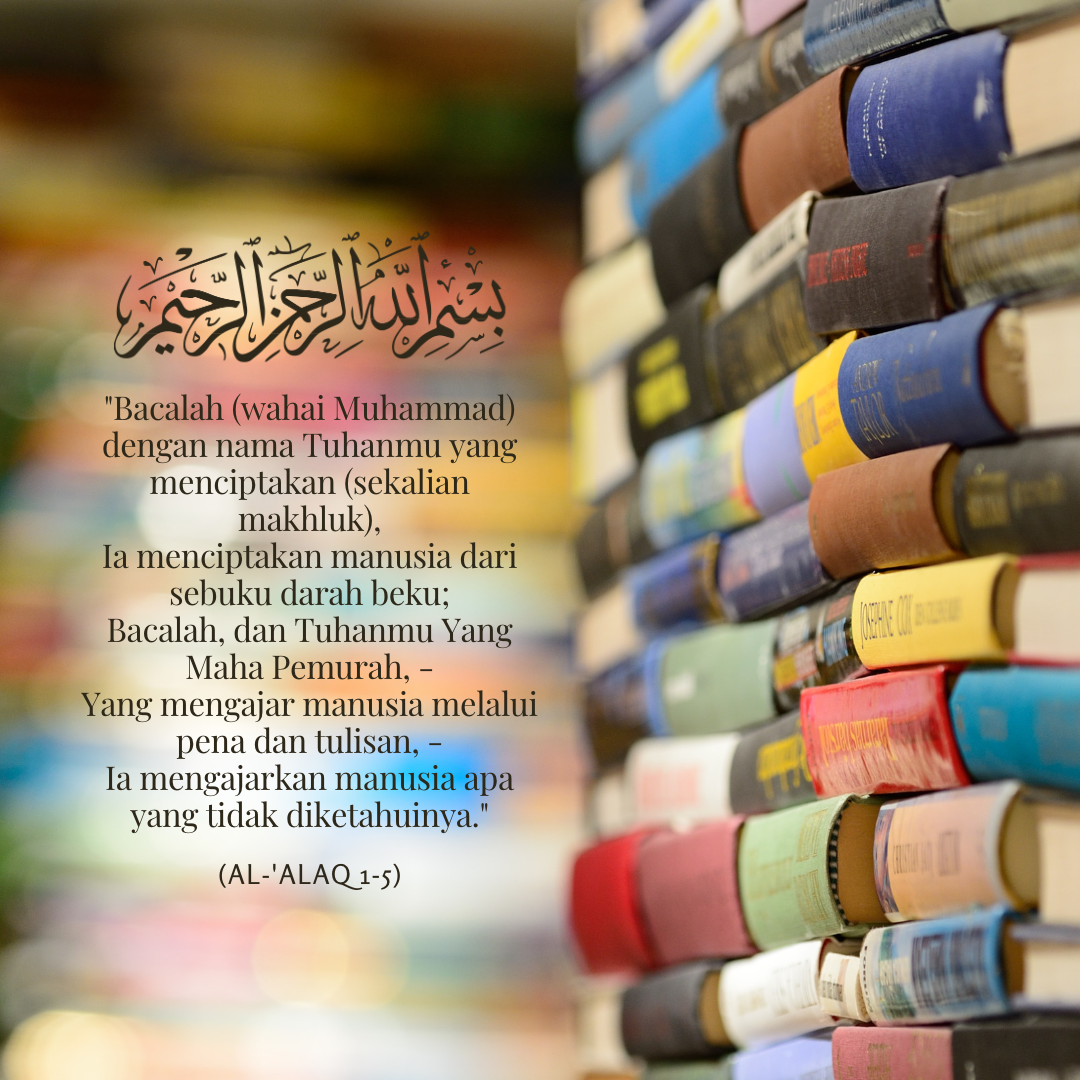 بِسْمِ اللَّهِ الرَّحْمَنِ الرَّحِيمِ
"Bacalah (wahai Muhammad)
dengan nama Tuhanmu yang
menciptakan (sekalian
makhluk),
Ia menciptakan manusia dari
sebuku darah beku;
Bacalah, dan Tuhanmu Yang
Maha Pemurah, -
Yang mengajar manusia melalui
pena dan tulisan, -
Ia mengajarkan manusia apa
yang tidak diketahuinya."
(AL-'ALAQ 1-5)
JOSEPHINE COX